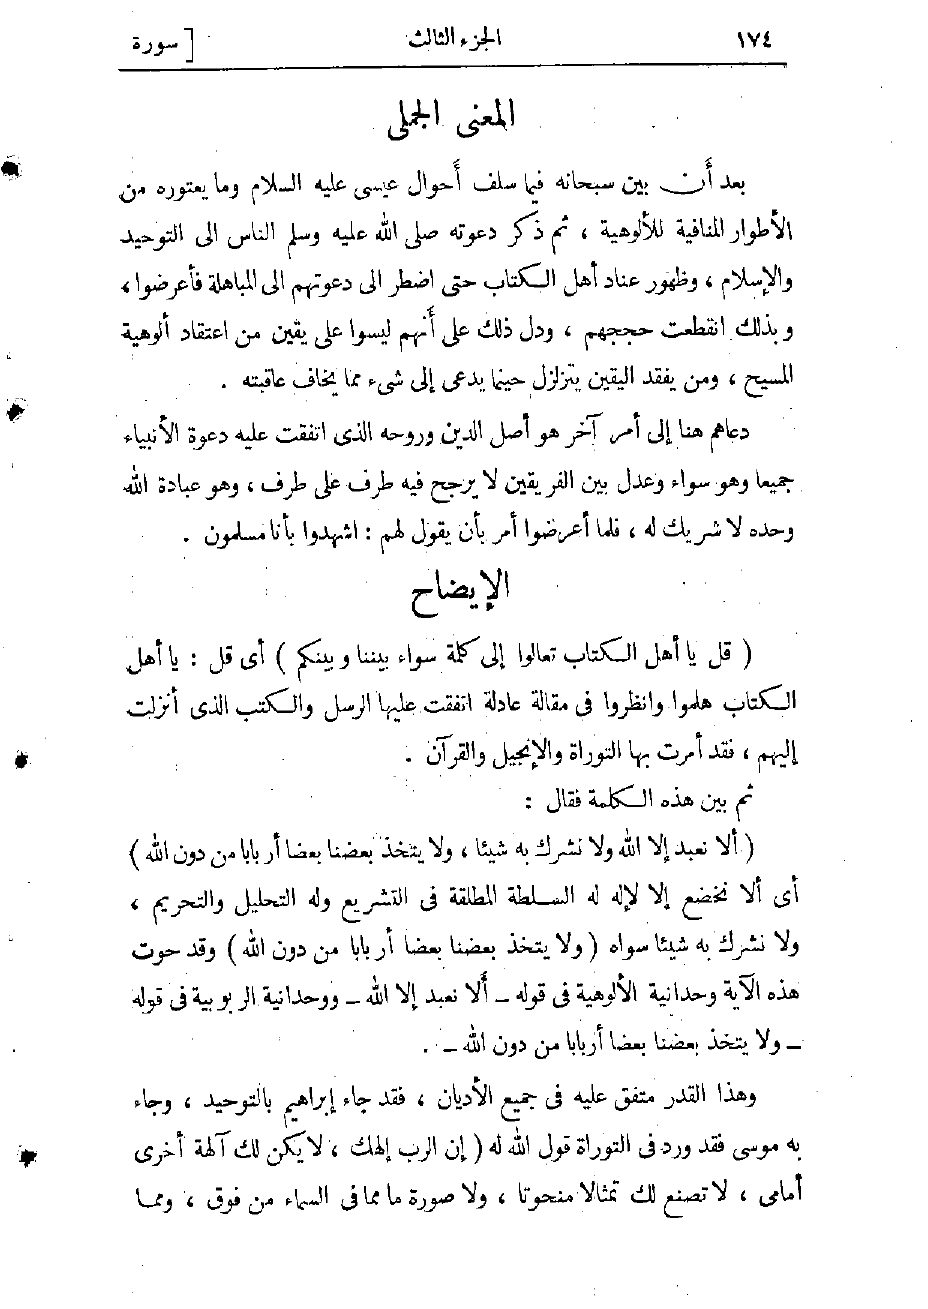 ١٧٤ الجزء الثالث [ سورة
المعنى الجملى
بعد أن بين سبحانه فيما سلف أحوال عيسى عليه السلام وما يعتوره من
الأطوار المنافية للألوهية ، ثم ذكر دعوته صلى الله عليه وسلم الناس الى التوحيد
والإسلام ، وظهور عناد أهل الكتاب حتى اضطر الى دعوتهم الى المباهلة فأعرضوا ،
وبذلك انقطعت حججهم ، ودل ذلك على أنهم ليسوا على يقين من اعتقاد ألوهية
المسيح ، ومن يفقد اليقين يتزلزل حينما يدعى إلى شىء مما يخاف عاقبته .
دعاهم هنا إلى أمر آخر هو أصل الدين وروحه الذى اتفقت عليه دعوة الأنبياء
جميعا وهو سواء وعدل بين الفريقين لا يرجح فيه طرف على طرف ، وهو عبادة الله
وحده لا شريك له ، فلما أعرضوا أمر بأن يقول لهم : اشهدوا بأنا مسلمون .
الإيضاح
( قل يا أهل الكتاب تعالوا إلى كلمة سواء بيننا وبينكم ) أى قل : يا أهل
الكتاب هلموا وانظروا فى مقالة عادلة اتفقت عليها الرسل والكتب الذى أنزلت
إليهم ، فقد أمرت بها التوراة والإنجيل والقرآن .
ثم بين هذه الكلمة فقال :
( ألا نعبد إلا الله ولا نشرك به شيئا ، ولا يتخذ بعضنا بعضا أربابا من دون الله )
أى ألا نخضع إلا لإله له السلطة المطلقة فى التشريع وله التحليل والتحريم ،
ولا نشرك به شيئا سواه ( ولا يتخذ بعضنا بعضا أربابا من دون الله ) وقد حوت
هذه الآية وحدانية الألوهية فى قوله ـ ألا نعبد إلا الله ـ ووحدانية الربوبية فى قوله
ـ ولا يتخذ بعضنا بعضا أربابا من دون الله ـ .
وهذا القدر متفق عليه فى جميع الأديان ، فقد جاء إبراهيم بالتوحيد ، وجاء
به موسى فقد ورد فى التوراة قول الله له ( إن الرب إلهك ، لا يكن لك آلهة أخرى
أمامى ، لا تصنع لك تمثالا منحوتا ، ولا صورة ما مما فى السماء من فوق ، ومما